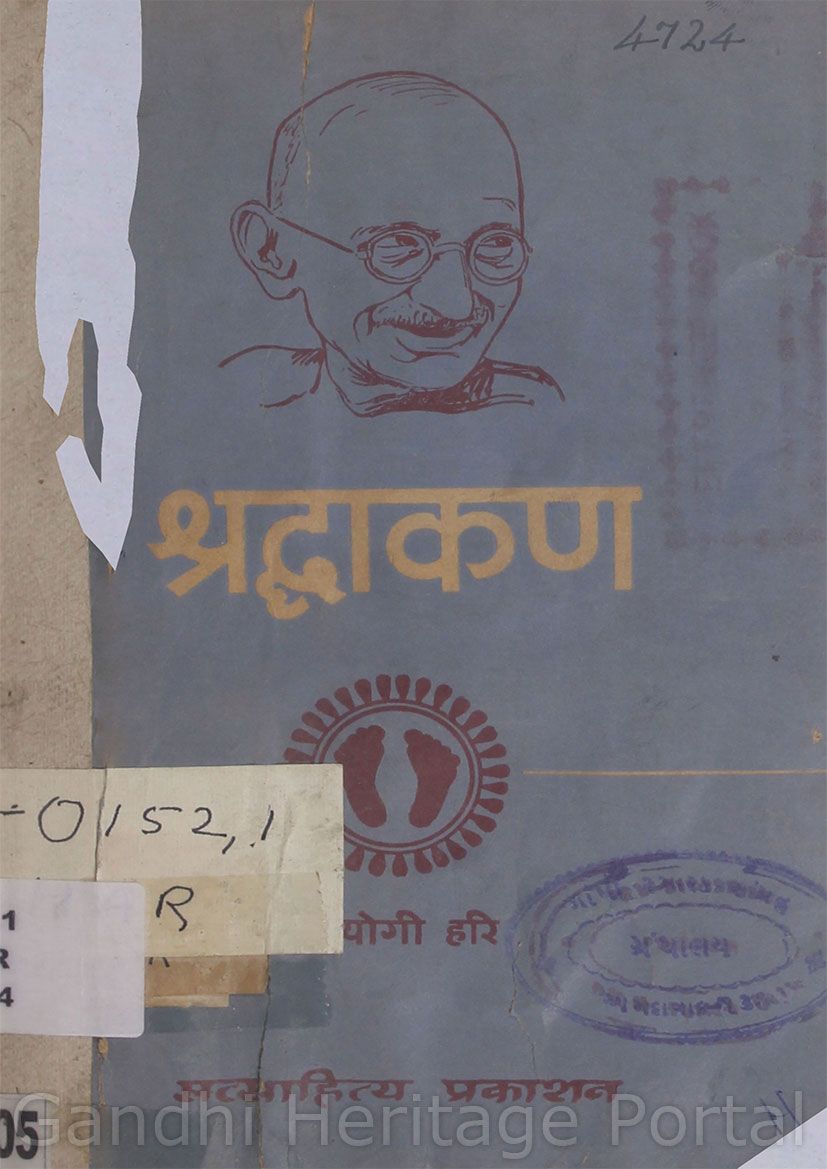 4724
श्रद्धाकण
-0152,1
R
1
R
4
योगी हरि
ગ્રંથાલય
सत्साहित्य प्रकाशन
05
Gandhi Heritage Portal